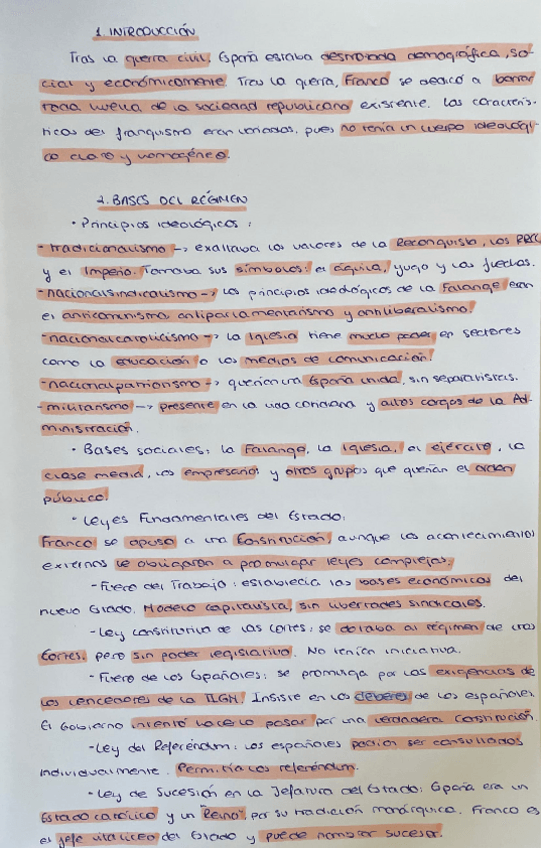 1. INTRODUCCIÓN
Tras la guerra civil, España estaba destrozada demográfica, so-
cial y económicamente. Tras la guerra, Franco se dedicó a borrar
toda huella de la sociedad republicana existente. Las caracterís-
ticas del franquismo eran variadas, pues no tenía un cuerpo ideológi-
co claro y homogéneo.
2. BASES DEL RÉGIMEN
• Principios ideológicos:
- tradicionalismo -> exaltaba los valores de la Reconquista, los RRCC
y el Imperio. Tomaba sus símbolos: el águila, yugo y las flechas.
- nacionalsindicalismo -> los principios ideológicos de la Falange eran
el anticomunismo, antiparlamentarismo y antiliberalismo.
- nacionalcatolicismo -> la Iglesia tiene mucho poder en sectores
como la educación o los medios de comunicación.
- nacionalpatriotismo -> querían una España unida, sin separatistas.
- militarismo -> presente en la vida cotidiana y altos cargos de la Ad-
ministración.
• Bases sociales: la Falange, la Iglesia, el ejército, la
clase media, los empresarios y otros grupos que querían el orden
público.
• Leyes Fundamentales del Estado:
Franco se opuso a una Constitución, aunque los acontecimientos
externos le obligaron a promulgar leyes complejas.
- Fuero del Trabajo: establecía las bases económicas del
nuevo Estado. Modelo capitalista, sin libertades sindicales.
- Ley constitutiva de las Cortes: se dotaba al régimen de unas
Cortes, pero sin poder legislativo. No tenían iniciativa.
- Fuero de los Españoles: se promulga por las exigencias de
los vencedores de la IIGM. Insiste en los deberes de los españoles.
El Gobierno intentó hacerlo pasar por una verdadera Constitución.
- Ley del Referéndum: los españoles podían ser consultados
individualmente. Permitía los referéndum.
- Ley de Sucesión en la Jefatura del Estado: España era un
Estado católico y un "Reino", por su tradición monárquica. Franco es
el jefe vitalicio del Estado y puede nombrar sucesor.